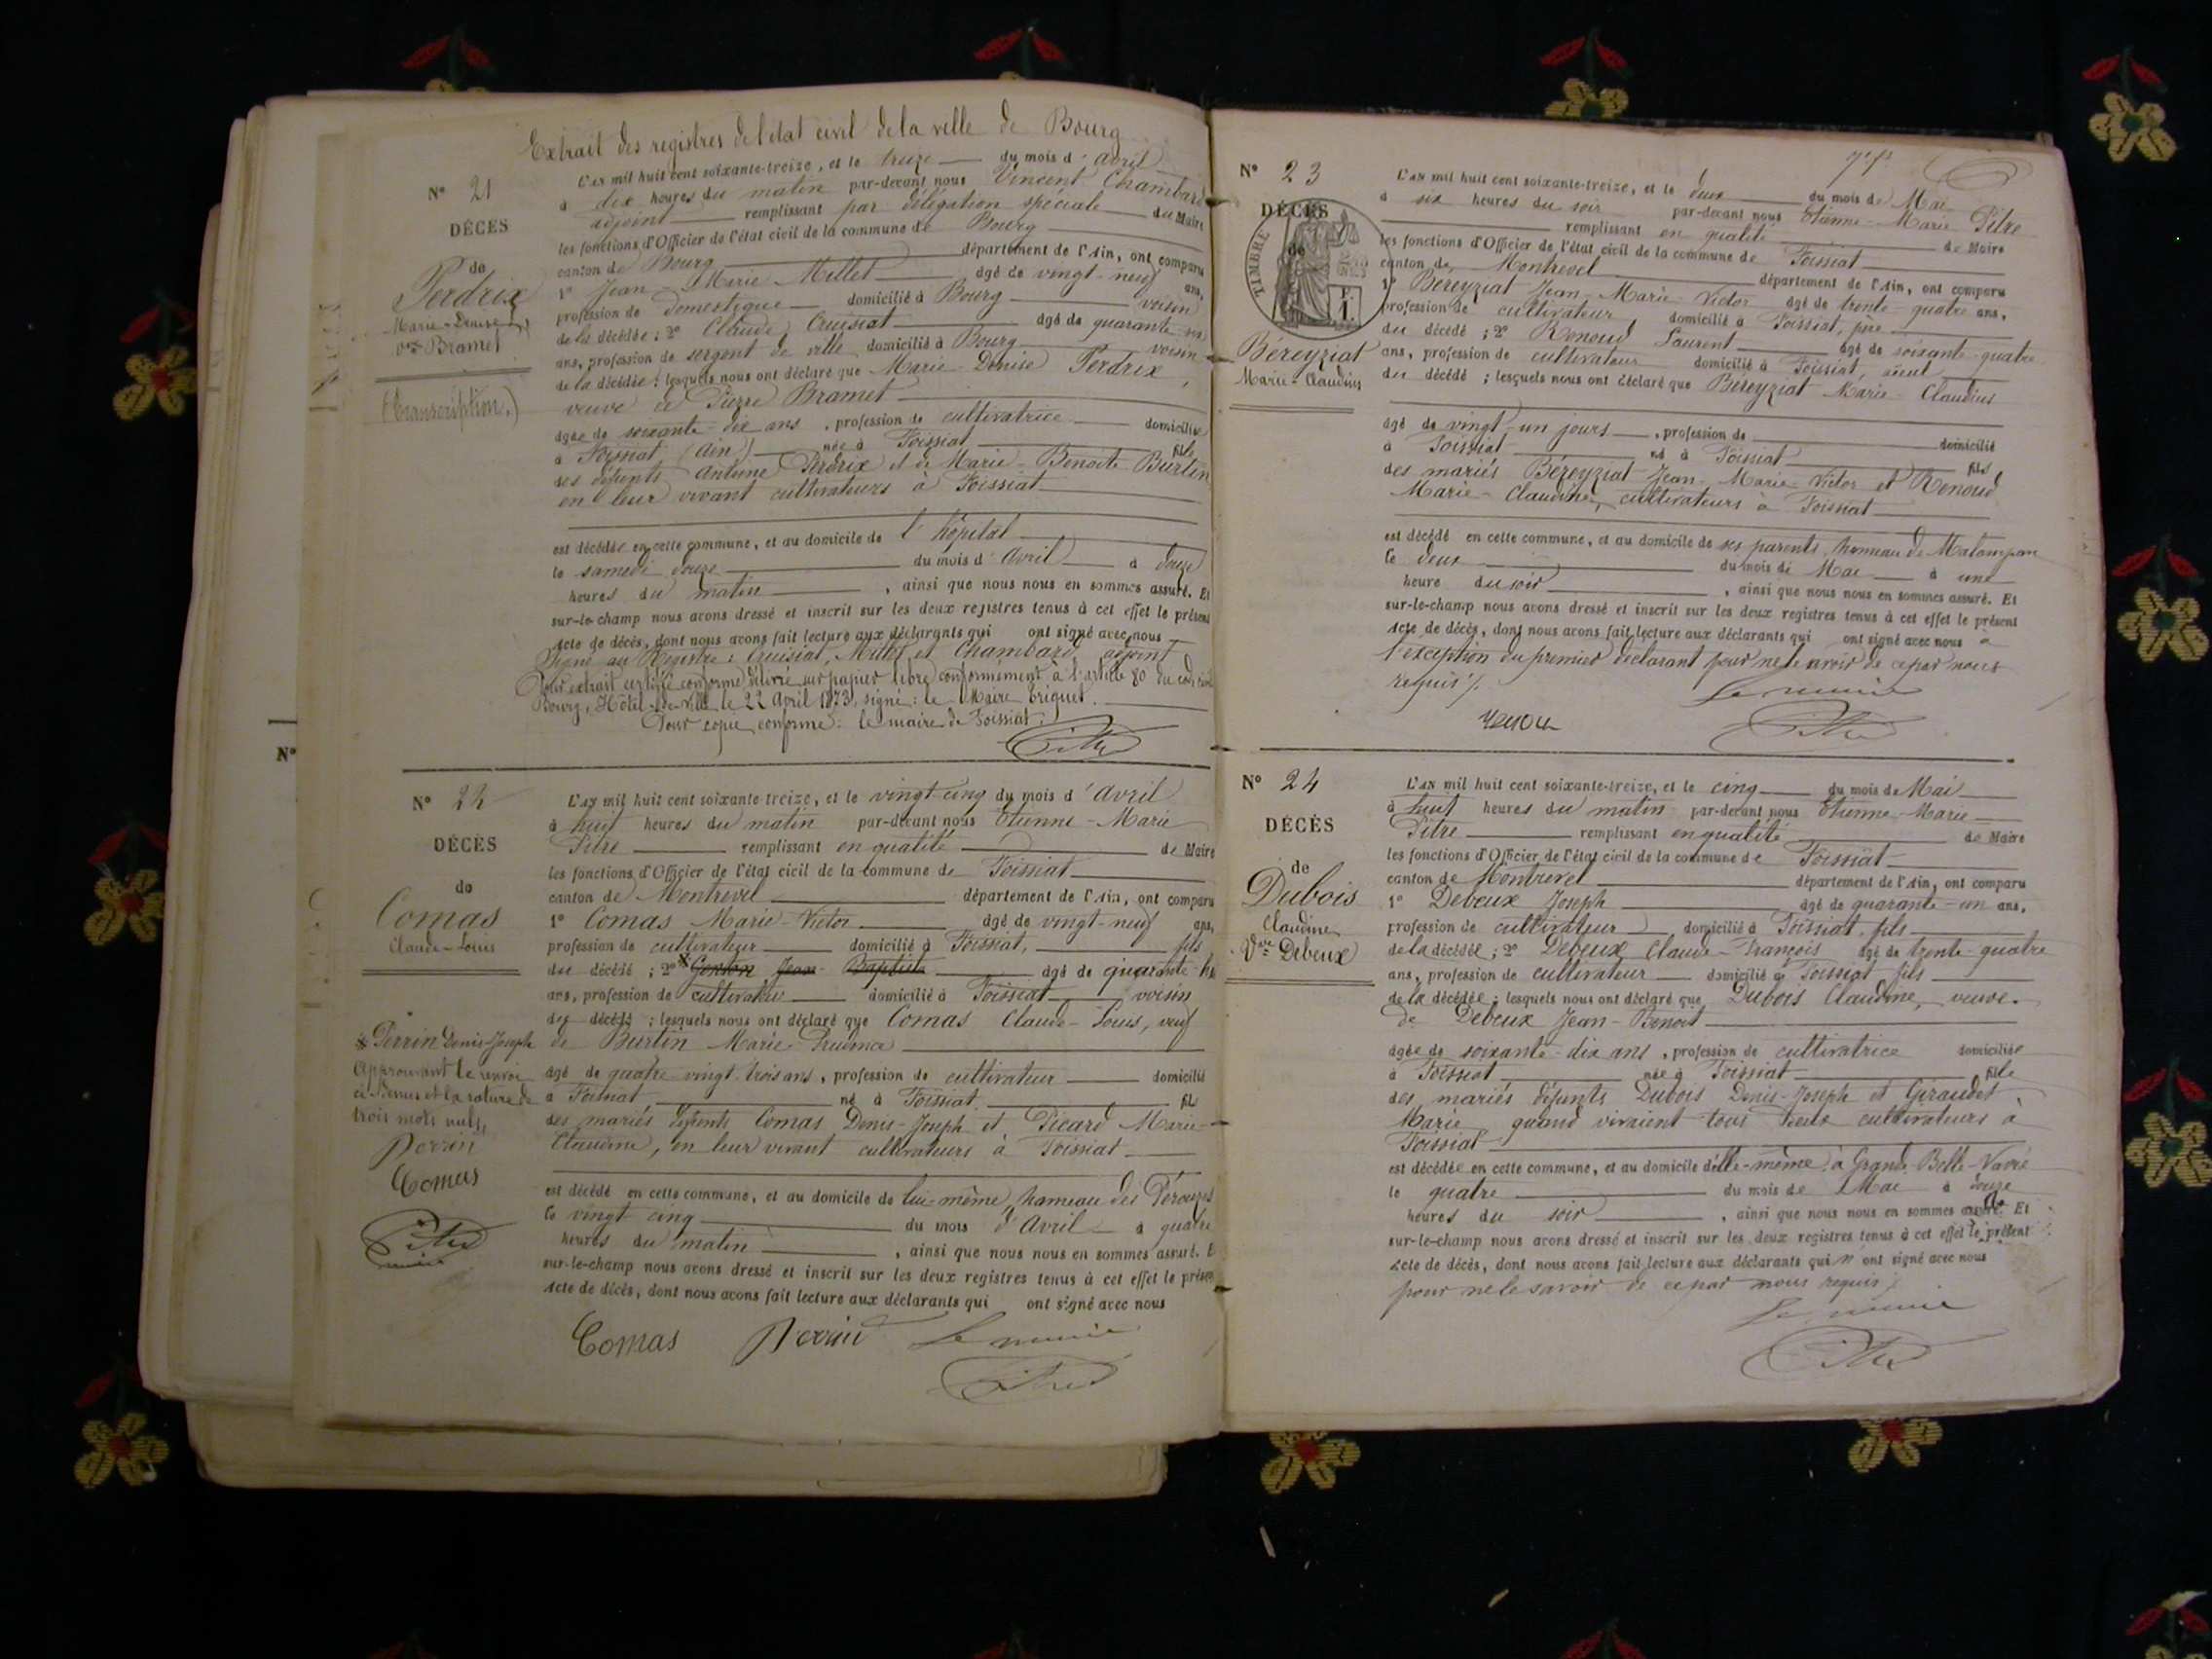 Extrait des registres de l'état civil de la ville de Bourg
N° 21
DÉCÈS
de
Perdrix
Marie-Denise
Vve Bramet
(Transcription.)
L'AN mil huit cent soixante-treize, et le treize du mois d'avril
à dix heures du matin par-devant nous Vincent Chambard
adjoint remplissant par délégation spéciale du Maire
les fonctions d'Officier de l'état civil de la commune de Bourg
canton de Bourg département de l'Ain, ont comparu
1° Jean Marie Millet âgé de vingt-neuf ans,
profession de domestique domicilié à Bourg voisin
de la décédée; 2° Claude Cruisiat âgé de quarante-
ans, profession de sergent de ville domicilié à Bourg voisin
de la décédée; lesquels nous ont déclaré que Marie Denise Perdrix,
veuve de Pierre Bramet
âgée de soixante-dix ans, profession de cultivatrice domiciliée
à Foissiat (Ain) née à Foissiat fille
des défunts Antoine Perdrix et de Marie-Benoite Burtin
en leur vivant cultivateurs à Foissiat
est décédée en cette commune, et au domicile de l'hôpital
le samedi douze du mois d'Avril à douze
heures du matin, ainsi que nous nous en sommes assuré. Et
sur-le-champ nous avons dressé et inscrit sur les deux registres tenus à cet effet le présent
acte de décès, dont nous avons fait lecture aux déclarants qui ont signé avec nous
Signé au Registre: Cruisiat, Millet et Chambard, adjoint
Pour extrait certifié conforme délivré sur papier libre conformément à l'article 80 du code civil
Bourg, Hôtel-de-Ville le 22 April 1873, signé: le Maire Briguet.
Pour copie conforme: le maire de Foissiat:
Pitre
N° 22
DÉCÈS
de
Comas
Claude-Louis
L'AN mil huit cent soixante-treize, et le vingt-cinq du mois d'Avril
à huit heures du matin par-devant nous Etienne-Marie
Pitre remplissant en qualité de Maire
les fonctions d'Officier de l'état civil de la commune de Foissiat
canton de Montrevel département de l'Ain, ont comparu
1° Comas Marie-Victor âgé de vingt-neuf ans,
profession de cultivateur domicilié à Foissiat, fils
du décédé; 2° Gonton Jean-Baptiste âgé de quarante-
ans, profession de cultivateur domicilié à Foissiat voisin
du décédé; lesquels nous ont déclaré que Comas Claude-Louis, veuf
de Burtin Marie-Prudence
âgé de quatre-vingt-trois ans, profession de cultivateur domicilié
à Foissiat né à Foissiat fils
des mariés défunts Comas Denis-Joseph et Picard Marie-
Claudine, en leur vivant cultivateurs à Foissiat
est décédé en cette commune, et au domicile de lui-même, hameau des Pérouzes
le vingt-cinq du mois d'Avril à quatre
heures du matin, ainsi que nous nous en sommes assuré. E
sur-le-champ nous avons dressé et inscrit sur les deux registres tenus à cet effet le présent
acte de décès, dont nous avons fait lecture aux déclarants qui ont signé avec nous
Comas Perrin Le maire
Pitre
Perrin Denis-Joseph
Approuvant le renvoi
ci-dessus et la rature de
trois mots nuls,
Perrin
Comas
Pitre
maire
N°
N° 23
DÉCÈS
de
TIMBRE
Béreyziat
Marie-Claudius
L'AN mil huit cent soixante-treize, et le deux du mois de Mai
à six heures du soir par-devant nous Etienne-Marie Pitre
remplissant en qualité de Maire
les fonctions d'Officier de l'état civil de la commune de Foissiat
canton de Montrevel département de l'Ain, ont comparu
1° Béreyziat Jean-Marie-Victor âgé de trente-quatre ans,
profession de cultivateur domicilié à Foissiat, père
du décédé; 2° Renoud Laurent âgé de soixante-quatre
ans, profession de cultivateur domicilié à Foissiat, aïeul
du décédé; lesquels nous ont déclaré que Béreyziat Marie-Claudius
âgé de vingt-un jours, profession de domicilié
à Foissiat né à Foissiat fils
des mariés Béreyziat Jean-Marie-Victor et Renoud
Marie-Claudine, cultivateurs à Foissiat
est décédé en cette commune, et au domicile de ses parents, hameau de Malompan
le deux du mois de Mai à une
heure du soir, ainsi que nous nous en sommes assuré. Et
sur-le-champ nous avons dressé et inscrit sur les deux registres tenus à cet effet le présent
acte de décès, dont nous avons fait lecture aux déclarants qui ont signé avec nous à
l'exception du premier déclarant pour ne le savoir de ce par nous
requis/.
Le maire
Pitre
N° 24
DÉCÈS
de
Dubois
Claudine
Vve Debeux
L'AN mil huit cent soixante-treize, et le cinq du mois de Mai
à huit heures du matin par-devant nous Etienne-Marie
Pitre remplissant en qualité de Maire
les fonctions d'Officier de l'état civil de la commune de Foissiat
canton de Montrevel département de l'Ain, ont comparu
1° Debeux Joseph âgé de quarante-un ans,
profession de cultivateur domicilié à Foissiat, fils
de la décédée; 2° Debeux Claude-François âgé de trente-quatre
ans, profession de cultivateur domicilié à Foissiat fils
de la décédée; lesquels nous ont déclaré que Dubois Claudine, veuve
de Debeux Jean-Benoit
âgée de soixante-dix ans, profession de cultivatrice domiciliée
à Foissiat née à Foissiat fille
des mariés défunts Dubois Denis-Joseph et Giraudet
Marie quand vivaient tous deux cultivateurs à
Foissiat
est décédée en cette commune, et au domicile d'elle-même à Grande Belle-Vavre
le quatre du mois de Mai à douze
heures du soir, ainsi que nous nous en sommes assuré. Et
sur-le-champ nous avons dressé et inscrit sur les deux registres tenus à cet effet le présent
acte de décès, dont nous avons fait lecture aux déclarants qui n'ont signé avec nous
pour ne le savoir de ce par nous requis/.
Le maire
Pitre